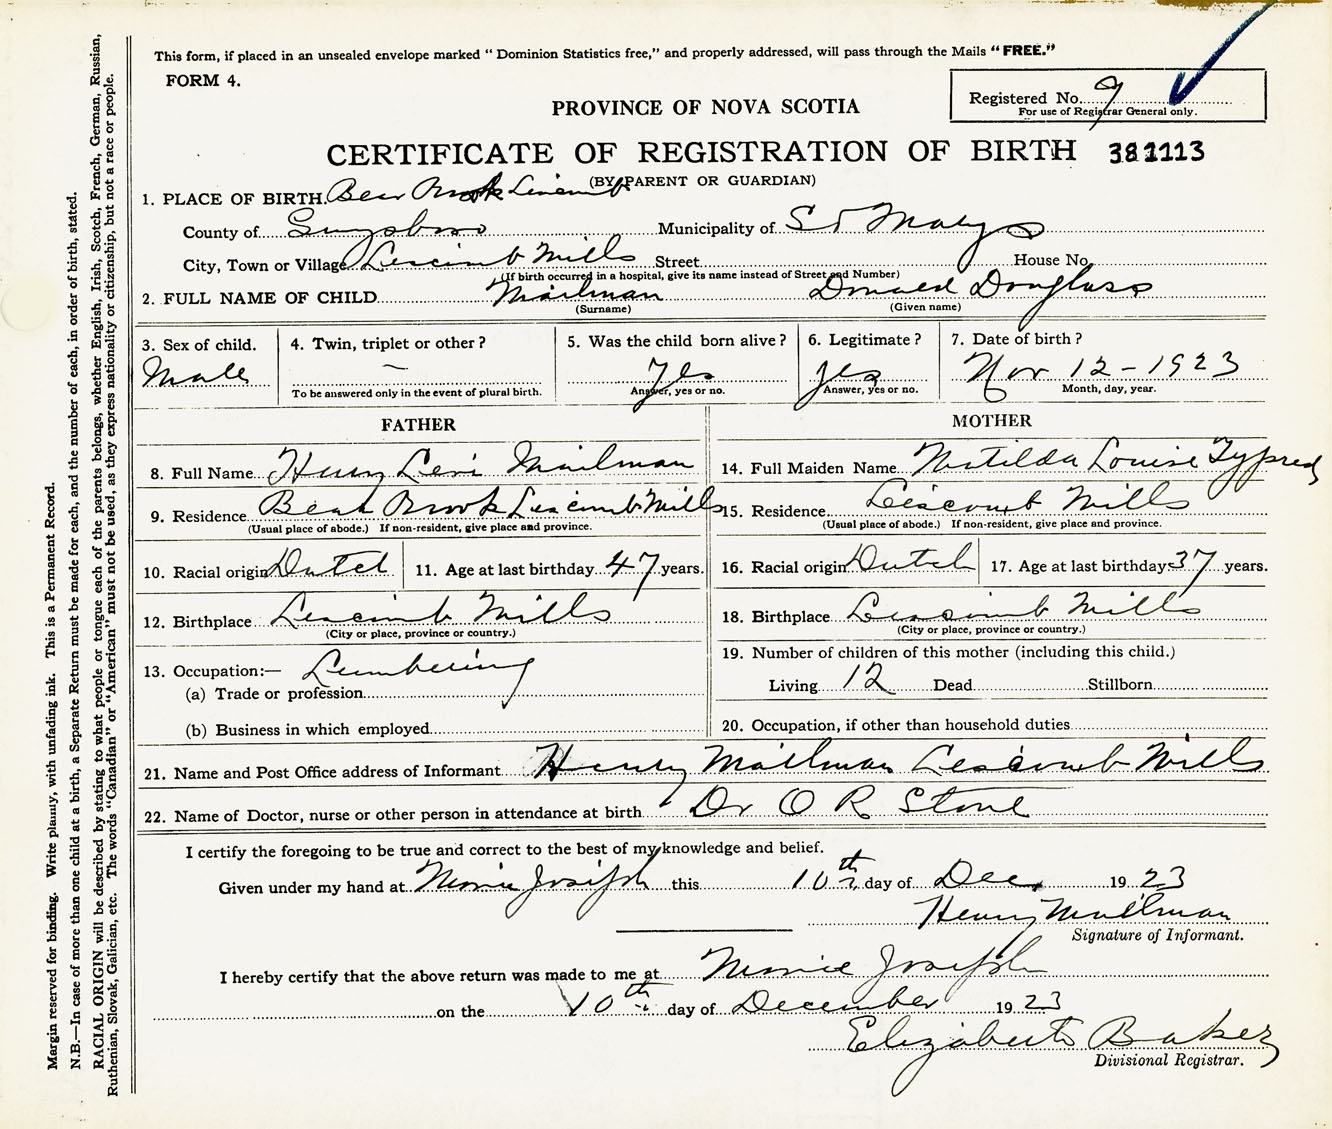 This form, if placed in an unsealed envelope marked “ Dominion Statistics free,” and properly addressed, will pass through the Mails “ FREE.”
FORM 4.
Registered No. 9
For use of Registrar General only.
PROVINCE OF NOVA SCOTIA
CERTIFICATE OF REGISTRATION OF BIRTH 381113
(BY PARENT OR GUARDIAN)
1. PLACE OF BIRTH. Bear Brook Liscomb
County of Guysboro Municipality of St Marys
City, Town or Village Liscomb Mills Street House No.
(If birth occurred in a hospital, give its name instead of Street and Number)
2. FULL NAME OF CHILD Mailman Donald Douglass
(Surname) (Given name)
3. Sex of child. 4. Twin, triplet or other ? 5. Was the child born alive ? 6. Legitimate ? 7. Date of birth ?
Male — Yes yes Nov 12 - 1923
To be answered only in the event of plural birth. Answer, yes or no. Answer, yes or no. Month, day, year.
FATHER MOTHER
8. Full Name Henry Levi Mailman 14. Full Maiden Name Matilda Louise
9. Residence Bear Brook Liscomb Mills 15. Residence Liscomb Mills
(Usual place of abode.) If non-resident, give place and province. (Usual place of abode.) If non-resident, give place and province.
10. Racial origin Dutch 11. Age at last birthday 47 years. 16. Racial origin Dutch 17. Age at last birthday 37 years.
12. Birthplace Liscomb Mills 18. Birthplace Liscomb Mills
(City or place, province or country.) (City or place, province or country.)
13. Occupation:— Lumbering 19. Number of children of this mother (including this child.)
(a) Trade or profession Living 12 Dead Stillborn
(b) Business in which employed 20. Occupation, if other than household duties
21. Name and Post Office address of Informant Henry Mailman Liscomb Mills
22. Name of Doctor, nurse or other person in attendance at birth Dr O R Stone
I certify the foregoing to be true and correct to the best of my knowledge and belief.
Given under my hand at Marie Joseph this 10th day of Dec. 1923
Henry Mailman
Signature of Informant.
I hereby certify that the above return was made to me at Marie Joseph
on the 10th day of December 1923
Elizabeth Baker
Divisional Registrar.
Margin reserved for binding. Write plainly, with unfading ink. This is a Permanent Record.
N.B.—In case of more than one child at a birth, a Separate Return must be made for each, and the number of each, in order of birth, stated.
RACIAL ORIGIN will be described by stating to what people or tongue each of the parents belongs, whether English, Irish, Scotch, French, German, Russian,
Ruthenian, Slovak, Galician, etc. The words “Canadian” or “American” must not be used, as they express nationality or citizenship, but not a race or people.